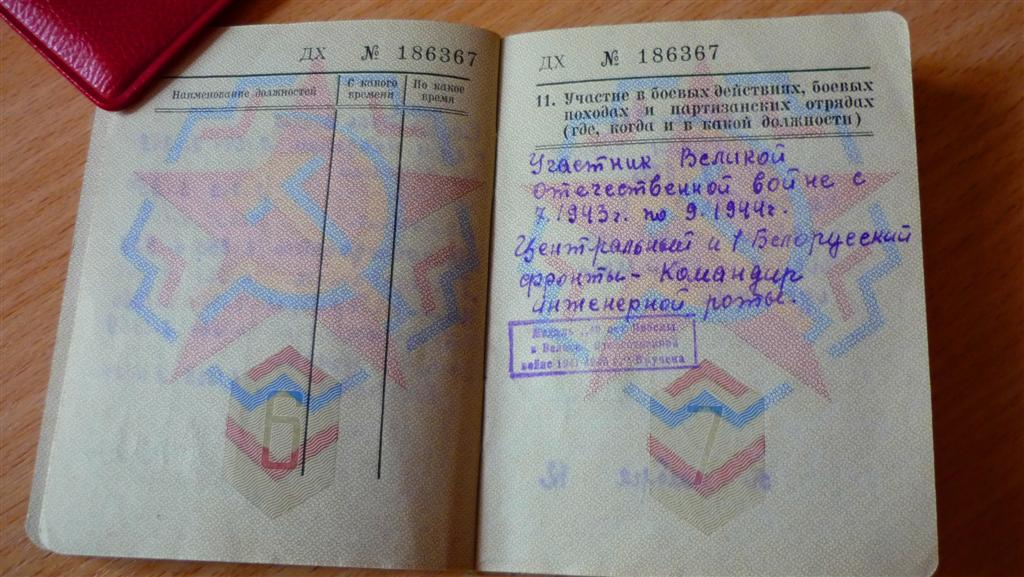 ДХ № 186367
Наименование должностей
С какого времени
По какое время
6
ДХ № 186367
11. Участие в боевых действиях, боевых
походах и партизанских отрядах
(где, когда и в какой должности)
Участник Великой
Отечественной войне с
7.1943г. по 9.1944г.
Центральный и 1 Белорусский
фронты - Командир
инженерной роты.
Медаль "40 лет Победы
в Великой Отечественной
войне 1941-1945 г." Вручена
7